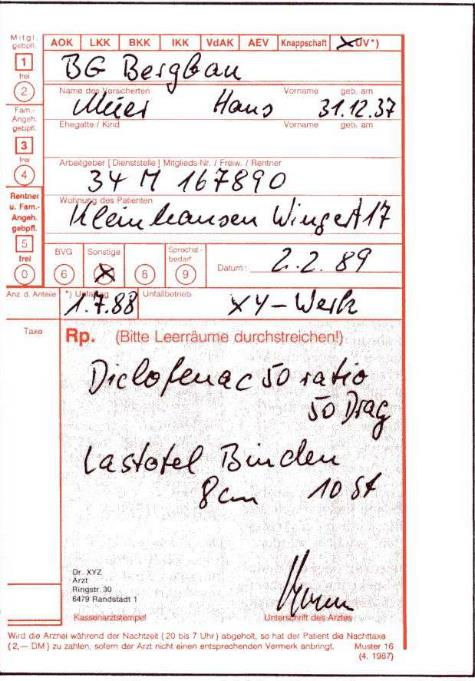 Mitgl. gebpfl.
1
frei
2
Fam.-Angeh. gebpfl.
3
frei
4
Rentner u. Fam.-Angeh. gebpfl.
5
frei
0
AOK LKK BKK IKK VdAK AEV Knappschaft UV*)
BG Bergbau
Name des Versicherten Vorname geb. am
Meier Hans 31.12.37
Ehegatte / Kind Vorname geb. am
Arbeitgeber [ Dienststelle ] Mitglieds-Nr. / Freiw. / Rentner
34 M 167890
Wohnung des Patienten
Kleinhausen Wingert 17
BVG Sonstige Sprechst.-bedarf
6 8 9
Datum: 2.2.89
Anz. d. *) Unfalltag Unfallbetrieb
1.7.88 XY-Werk
Taxe
Rp. (Bitte Leerräume durchstreichen!)
Diclofenac 50 ratio
50 Drag
Lastotel Binden
8cm 10 St
Dr. XYZ
Arzt
Ringstr. 30
6479 Randstadt 1
Kassenarztstempel Unterschrift des Arztes
Wird die Arznei während der Nachtzeit (20 bis 7 Uhr) abgeholt, so hat der Patient die Nachttaxe
(2,— DM) zu zahlen, sofern der Arzt nicht einen entsprechenden Vermerk anbringt. Muster 16
(4. 1987)